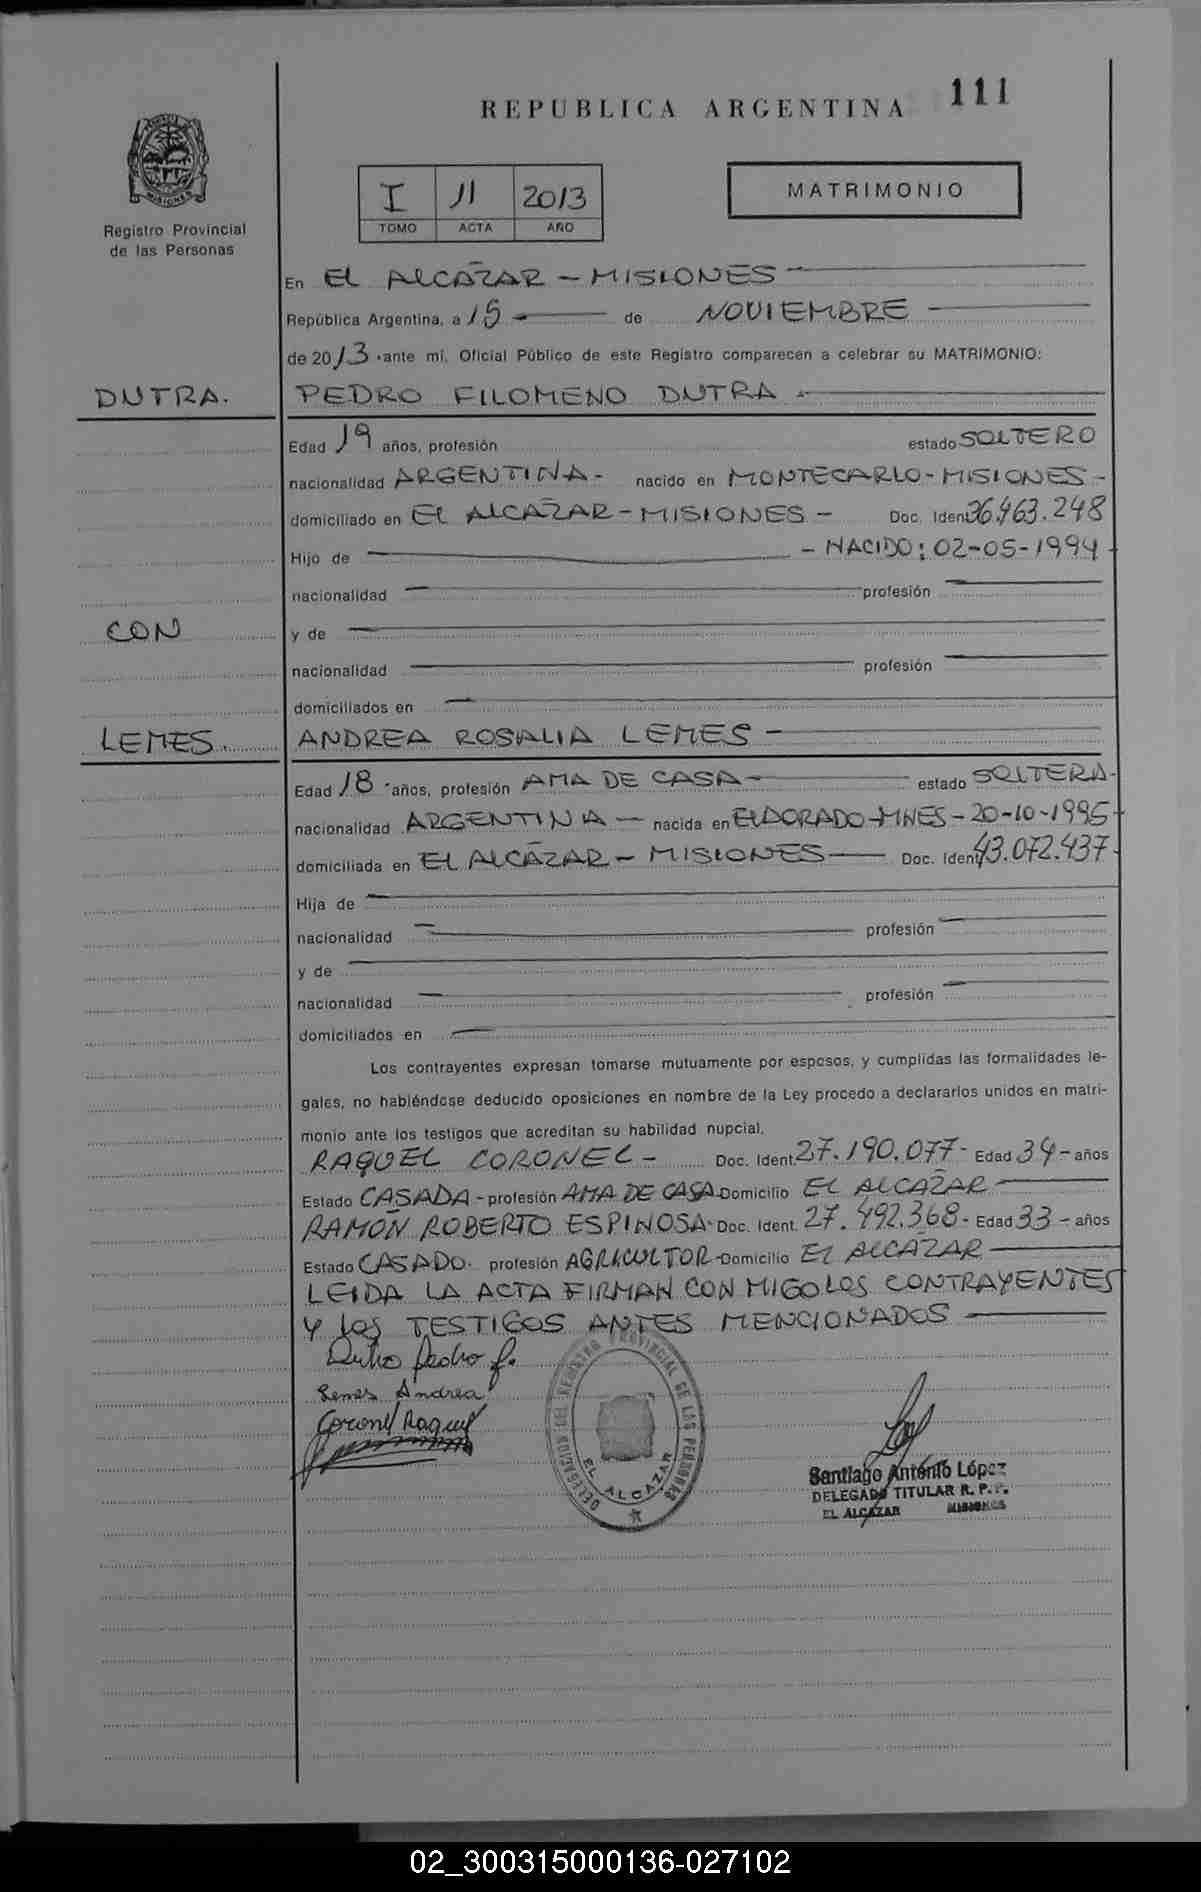 REPUBLICA ARGENTINA 111
Registro Provincial
de las Personas
I 11 2013
TOMO ACTA AÑO
MATRIMONIO
En EL ALCAZAR - MISIONES
República Argentina, a 15 de NOVIEMBRE
de 2013 ante mí, Oficial Público de este Registro comparecen a celebrar su MATRIMONIO:
DUTRA. PEDRO FILOMENO DUTRA
Edad 19 años, profesión estado SOLTERO
nacionalidad ARGENTINA - nacido en MONTECARLO - MISIONES -
domiciliado en EL ALCAZAR - MISIONES - Doc. Ident 36.463.248
Hijo de - NACIDO: 02-05-1994 -
nacionalidad profesión
CON y de
nacionalidad profesión
domiciliados en
LEMES. ANDREA ROSALIA LEMES -
Edad 18 años, profesión AMA DE CASA - estado SOLTERA-
nacionalidad ARGENTINA - nacida en ELDORADO - MNES - 20-10-1995
domiciliada en EL ALCAZAR - MISIONES - Doc. Ident 43.072.437-
Hija de
nacionalidad profesión
y de
nacionalidad profesión
domiciliados en
Los contrayentes expresan tomarse mutuamente por esposos, y cumplidas las formalidades le-
gales, no habiéndose deducido oposiciones en nombre de la Ley procedo a declararlos unidos en matri-
monio ante los testigos que acreditan su habilidad nupcial.
RAQUEL CORONEL - Doc. Ident. 27.190.077- Edad 34 - años
Estado CASADA - profesión AMA DE CASA Domicilio EL ALCAZAR
RAMON ROBERTO ESPINOSA - Doc. Ident. 27.492.368- Edad 33 - años
Estado CASADO. profesión AGRICULTOR - Domicilio EL ALCAZAR
LEIDA LA ACTA FIRMAN CONMIGO LOS CONTRAYENTES
Y LOS TESTIGOS ANTES MENCIONADOS
Dutra Pedro f.
Lemes Andrea
Coronel Raquel
DELEGACION DEL REGISTRO PROVINCIAL DE LAS PERSONAS
EL ALCAZAR
Santiago Antonio López
DELEGADO TITULAR R. P. P.
EL ALCAZAR MISIONES
02_300315000136-027102